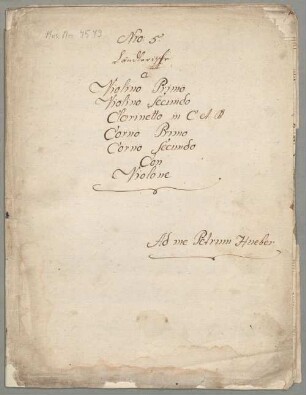 Mus. Mss. 4543
Nro 5
a
Violino Primo
Violino Secundo
Clarinetto in C et B
Corno Primo
Corno Secundo
Con
Violone
Ad me Petrum Hueber